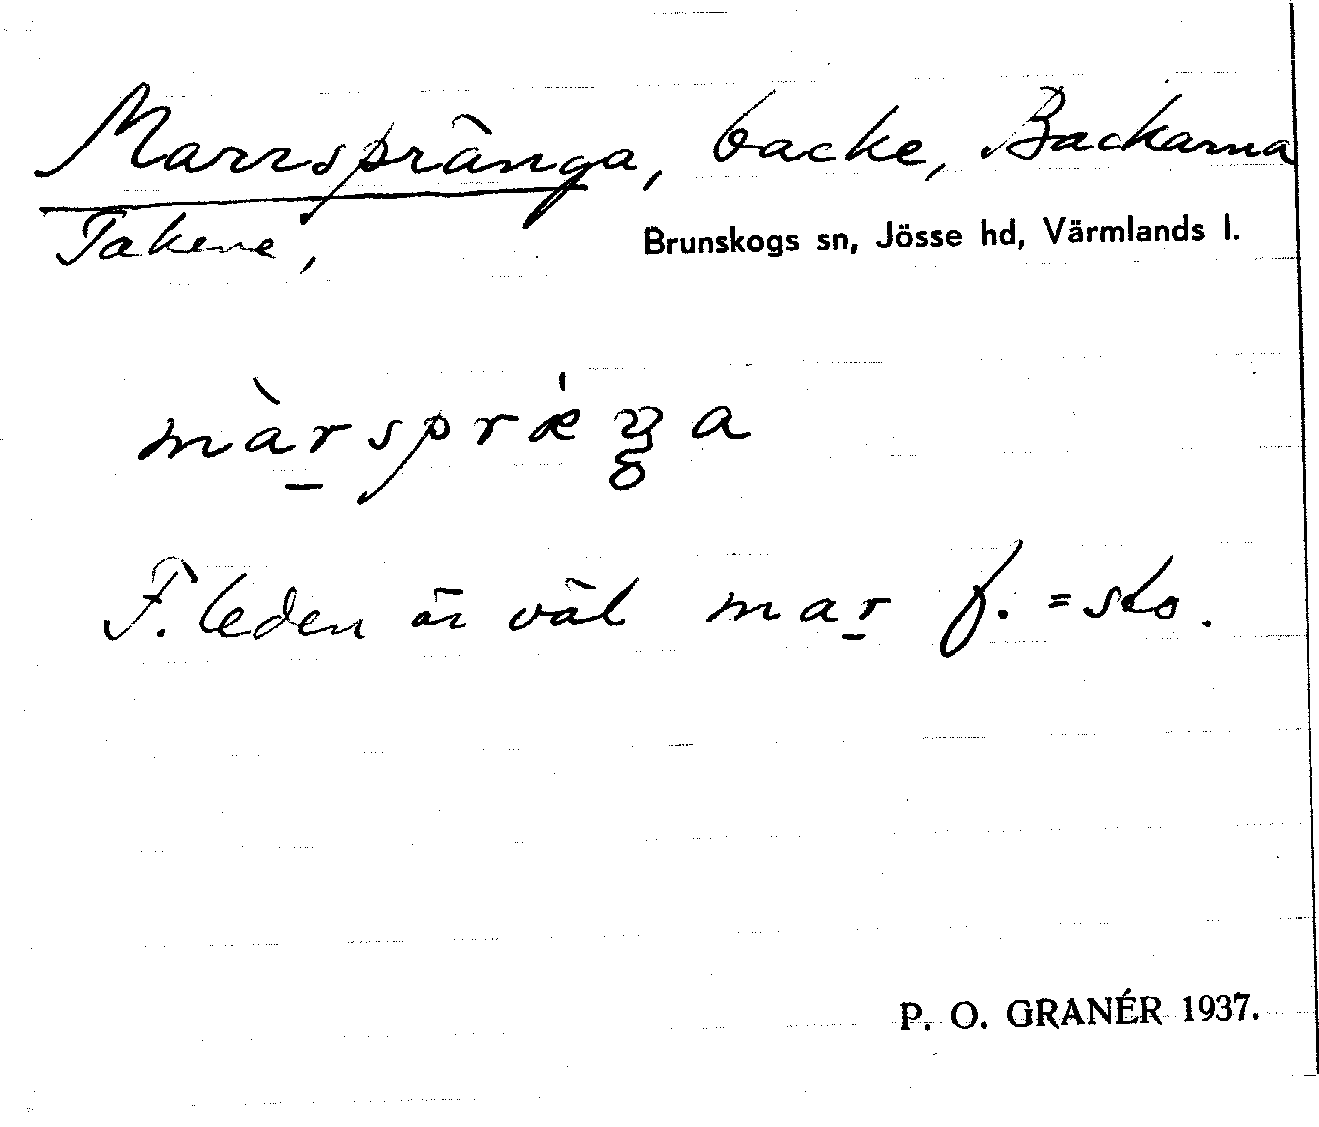 Marrspränga, backe, Backarna
Takene,
Brunskogs sn, Jösse hd, Värmlands l.
màr̲sprǽŋa
F. leden är väl mar̲ f. = sto.
P. O. GRANÉR 1937.